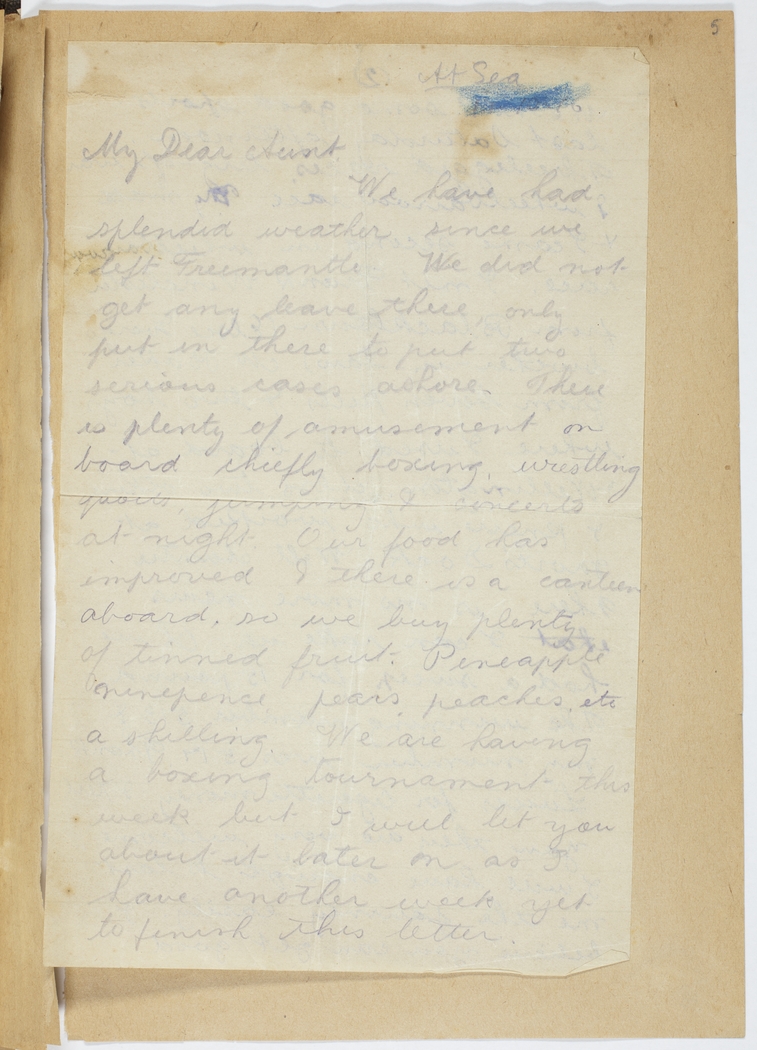 5
At Sea
My Dear Aunt.
We have had
splendid weather since we
left Freemantle. We did not
get any leave there, only
put in there to put two
serious cases ashore. There
is plenty of amusement on
board chiefly boxing, wrestling
quoits, jumping & concerts
at night. Our food has
improved & there is a canteen
aboard, so we buy plenty
of tinned fruit. Pineapple
ninepence, pears, peaches, etc
a shilling. We are having
a boxing tournament this
week but I will let you
about it later on as I
have another week yet
to finish this letter.